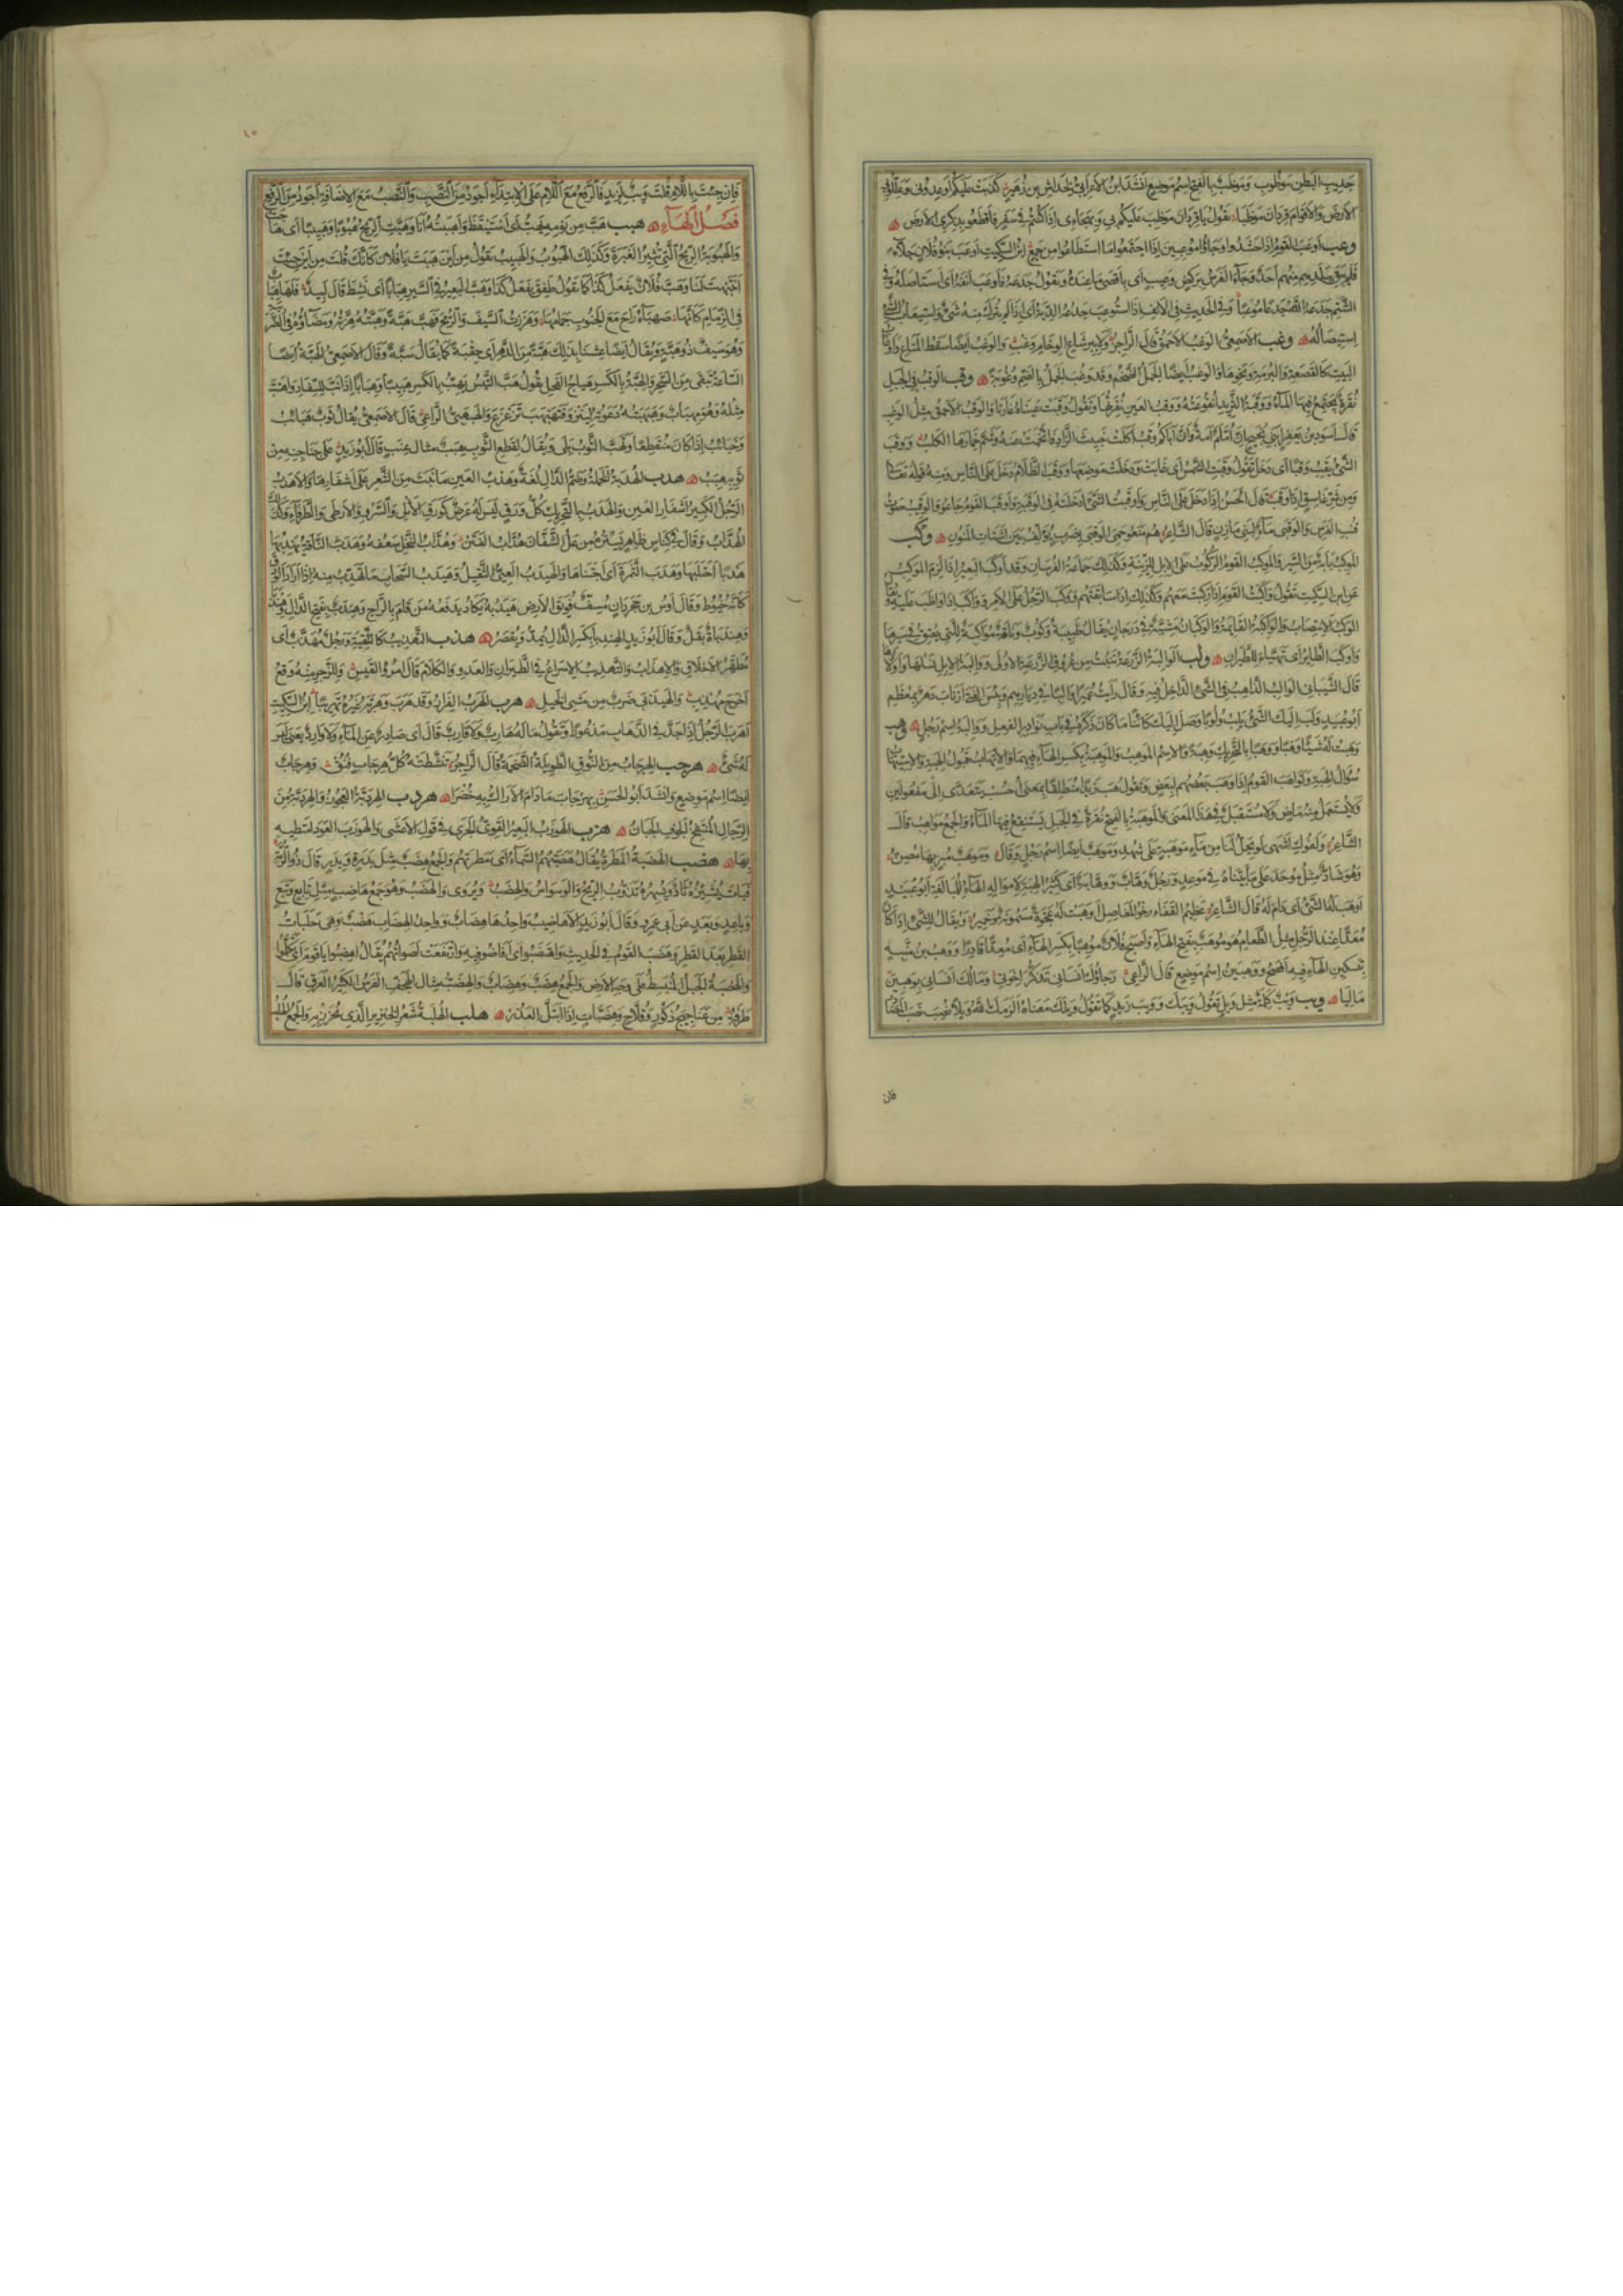 جديب البطن موظوب وموظب بالفتح اسم موضع انشد ابن الاعرابي لخداش بن زهير كذبت عليكم اوعدوني وعللوا بي
الارض والاقوام قردان موظبا نقول يا قردان موظب عليكم بي وبهجاءى اذا كنتم في سفر فاقطعوا بذكرى الارض
وعب اوعب القوم اذا حشدوا وجاؤا موعبين اذا اجتمعوا ما استطاعوا من جمع ابن السكيت اوعب بنو فلان جلاء
فلم يبق ببلدهم منهم احد وجاء الفرس بركض وعيب اى باقصى ما عنده وتقول جدعه فاوعب انفه اى استاصله وفي
الشتم جدعه الله جدعا موعبا وفي الحديث في الانف اذا استوعب جدعه الدية اى اذا لم يترك منه شئ واستيعاب الشئ
استيصاله وغب الاصمعي الوغب الاحمق قال الراجز ولا ببرشاع الوخام وغب والوغب ايضا سقط المتاع واوغاب
البيت كالقصعة والبرمة ونحوها والوغب ايضا الجمل الضخم وقد وغب الجمل بالضم وغوبة وقب الوقب في الجبل
نقرة يجتمع فيها الماء ووقبة الثريد انقوعته ووقب العين نقرتها وتقول وقبت عيناه غارتا والوقب الاحمق مثل الوغب
قال اسود بن يعفر ابني نجيح ان امكم امة وان اباكم وقب اكلت خبيث الزاد فاتخمت عنه وشم خمارها الكلب ووقب
الشئ يقب وقبا اى دخل تقول وقبت الشمس اى غابت ودخلت موضعها ووقب الظلام دخل على الناس ومنه قوله تعالى
ومن شر غاسق اذا وقب قال الحسن اذا دخل على الناس واوقبت الشئ ادخلته في الوقبة واوقب القوم جاعوا والوقيب صوت
قنب الفرس والوقبى ماء لبني مازن قال الشاعر هم منعوا حمى الوقبى بضرب يؤلف بين اشتات المنون وكب
الموكب بابة من السير والموكب القوم الركوب على الابل للزينة وكذلك جماعة الفرسان وقد اوكب البعير اذا لزم الموكب
عن ابن السكيت تقول واكبت القوم اذا ركبت معهم وكذلك اذا سابقتهم ووكب الرجل على الامر وواكب اذا واظب عليه ويقال
الوكب الانتصاب والواكبة القائمة والوكبان مشية في درجان يقال ظبية وكوب وناقة مواكبة للتى يعنق في سيرها
واوكب الطاير اى تهيا للطيران ولب الوالبة الزرعة تنبت من عروق الزرعة الاولى ووالبة الابل نسلها واولادها
قال الشيباني الوالب الذاهب في الشئ الداخل فيه وقال رايت عميرا والبا في ديارهم وبئس الفتى ان ناب دهر بمعظم
ابو عبيد ولب اليك الشئ يلب ولوبا وصل اليك كائنا ما كان ذكره في باب نوادر الفعل ووالبة اسم رجل وهب
وهبت له شيئا وهبا ووهبا بالتحريك وهبة والاسم الموهب والموهبة بكسر الهاء فيهما والاتهاب قبول الهبة والاستيهاب
سؤال الهبة وتواهب القوم اذا وهب بعضهم لبعض وتقول هب زيدا منطلقا بمعنى احسب يتعدى الى مفعولين
ولا يستعمل منه ماض ولا مستقبل في هذا المعنى والموهبة بالفتح نقرة في الجبل يستنقع فيها الماء والجمع مواهب قال
الشاعر ولفوك اشهى لو يحل لنا من ماء موهبة على شهد وموهب ايضا اسم رجل وقال وموهب مبر بها مصن
وهو شاذ مثل موحد على ما بيناه في موعد ورجل وهاب ووهابة اى كثير الهبة لامواله الهاء للمبالغة ابو عبيد
اوهب له الشئ اى دام له قال الشاعر عظيم القفا رخو المفاصل اوهبت له عجوة مسمونة وخمير ويقال للشئ اذا كان
معدا عند الرجل مثل الطعام هو موهب بفتح الهاء واصبح فلان موهبا بكسر الهاء اى معدا قادرا ووهب بن منبه
بتسكين الهاء فيه افصح ووهبين اسم موضع قال الراعي رجاؤك انساني تذكر اخوتي ومالك انساني بوهبين
ماليا ويب ويب كلمة مثل ويل تقول ويبك وويب زيد كما تقول ويلك معناه الزمك الله ويلا نصب نصب المصادر
فان
فان جئت باللام قلت ويب لزيد فالرفع مع اللام على الابتداء اجود من النصب والنصب مع الاضافة اجود من الرفع
فصل الهاء هبب هب من نومه يهب اى استيقظ واهببته انا وهبت الريح هبوبا وهبيبا اى هاجت
والهبوبة الريح التي تثير الغبرة وكذلك الهبوب والهبيب تقول من اين هببت يا فلان كانك قلت من اين جئت
انتبهت لنا وهب فلان يفعل كذا كما تقول طفق يفعل كذا وهب البعير في السير هبابا اى نشط قال لبيد فلها هباب
في الزمام كانها صهباء راح مع الجنوب جهامها وهززت السيف والرمح فهب هبة وهبته هزته ومضاؤه في الضريبة
وهو سيف ذو هبة ويقال ايضا عشنا بذلك هبة من الدهر اى حقبة كما يقال سبة وقال الاصمعي الهبة ايضا
الساعة تبقى من السحر والهبة بالكسر هياج الفحل يقول هب التيس يهب بالكسر هبيبا وهبابا اذا نب للسفاد واهتب
مثله وهو مهباب وهبهبته دعوته لينزو فتهبهب تزعزع والهبهبي الراعي قال الاصمعي يقال ثوب هبائب
وخبائب اذا كان متقطعا وتهبب الثوب بلى ويقال لقطع الثوب هبب مثال عنب قال ابو زيد على جناجنه من
ثوبه هبب هدب الهدبة الخملة وضم الدال لغة وهدب العين ما نبت من الشعر على اشفارها والاهدب
الرجل الكثير اشفار العين والهدب بالتحريك كل ورق ليس له عرض كورق الاثل والسرو والارطى والطرفاء وكذلك
الهداب وقال في كناس ظاهر يستره من عل الشفان هداب الفنن وهداب النخل سعفه وهدب الناقة يهدبها
هدبا احتلبها وهدب الثمرة اى اجتناها والهيدب العيى الثقيل وهيدب السحاب ما تهدب منه اذا اراد الودق
كانه خيوط وقال اوس بن حجر دان مسف فويق الارض هيدبه يكاد يدفعه من قام بالراح وهندب بفتح الدال
وهندباة بقل وقال ابو زيد الهندبا بكسر الدال يمد ويقصر هذب التهذيب كالتنقية ورجل مهذب اى
مطهر الاخلاق والاهذاب والتهذيب الاسراع في الطيران والعدو والكلام قال امرؤ القيس وللزجر منه وقع
اخرج مهذب والهيذبى ضرب من مشى الخيل هرب الهرب الفرار وقد هرب وهربه غيره تهريبا ابن السكيت
اهرب الرجل اذا جد في الذهاب مذعورا وتقول ماله هارب ولا قارب قال اى صادر عن الماء ولا وارد يعني ليس
له شئ هرجب الهرجاب من النوق الطويلة الضخمة قال الراجز تنشطته كل هرجاب فنق وهرجاب
ايضا اسم موضع وانشد ابو الحسن بهرجاب ما دام الاراك به خضرا هردب الهردبة العجوز والهردبة من
الرجال المنتفخ الجوف الجبان هزب الهوزب البعير القوى الجرى في قول الاعشى والهوزب العود امتطيه
بها هضب الهضبة المطرة يقال هضبتهم السماء اى مطرتهم والجمع هضب مثل بدرة وبدر قال ذو الرمة
فبات يشئزه ثأد ويسهره تذؤب الريح والوسواس والهضب ويروى والهضب وهو جمع هاضب مثل تابع وتبع
وباعد وبعد عن ابي عمرو وقال ابو زيد الاهاضيب واحدها هضاب وواحد الهضاب هضب وهي حلبات
القطر بعد القطر وهضب القوم في الحديث واهتضبوا اى افاضوا فيه وارتفعت اصواتهم يقال اهضبوا يا قوم اى تكلموا
والهضبة الجبل المنبسط على وجه الارض والجمع هضب وهضاب والهضب مثال الهجف الفرس الكثير العرق قال
طرفة من عناجيج ذكور وقح وهضبات اذا ابتل العذر هلب الهلبة شعر الخنزير الذي يخرز به والجمع الهلب